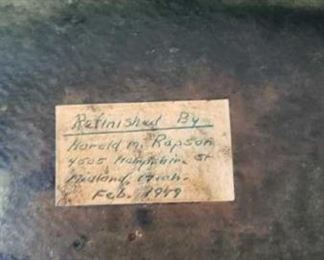 Refinished By
Harold M. Rapson
4505 Hampshire St
Midland, Mich.
Feb. 1979